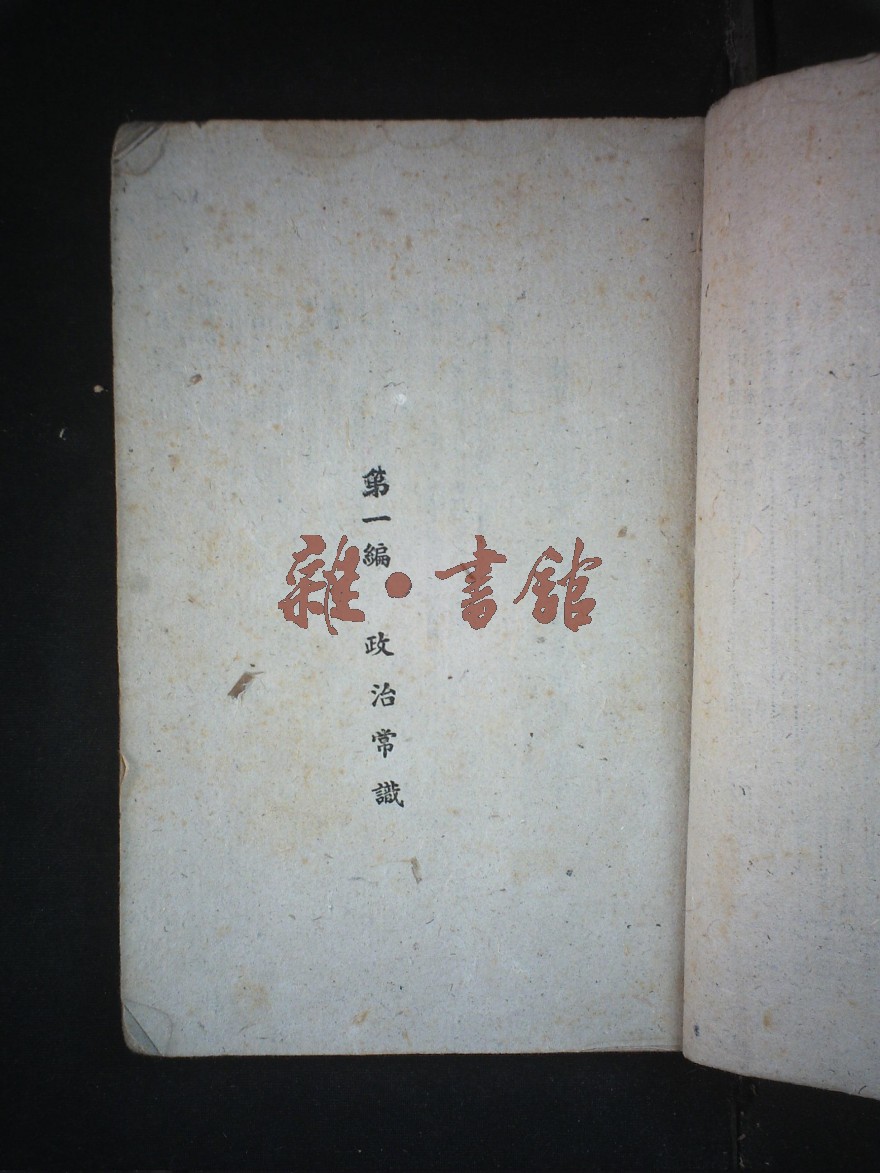 第一編 政治常識
雜·書館